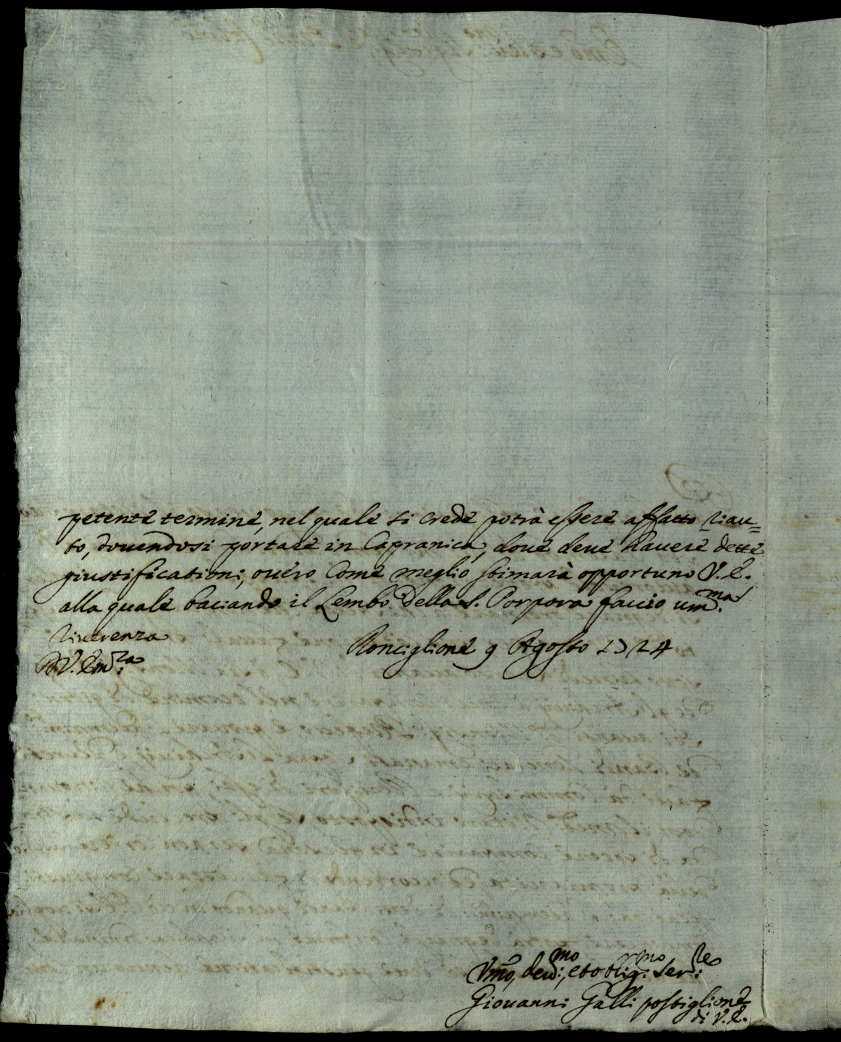 petente termine, nel quale si crede potrà essere affatto riau=
to, dovendosi portare in Capranica, dove deve havere dette
giustificationi, overo come meglio stimarà opportuno V.E.
alla quale baciando il Lembo della S. Porpora faccio um.ma
riverenza
D V. Em.za
Ronciglione 9 Agosto 1724
Vmo, dev:mo, et obligr:mo Ser:re
Giovanni Galli postiglione
di V.E.